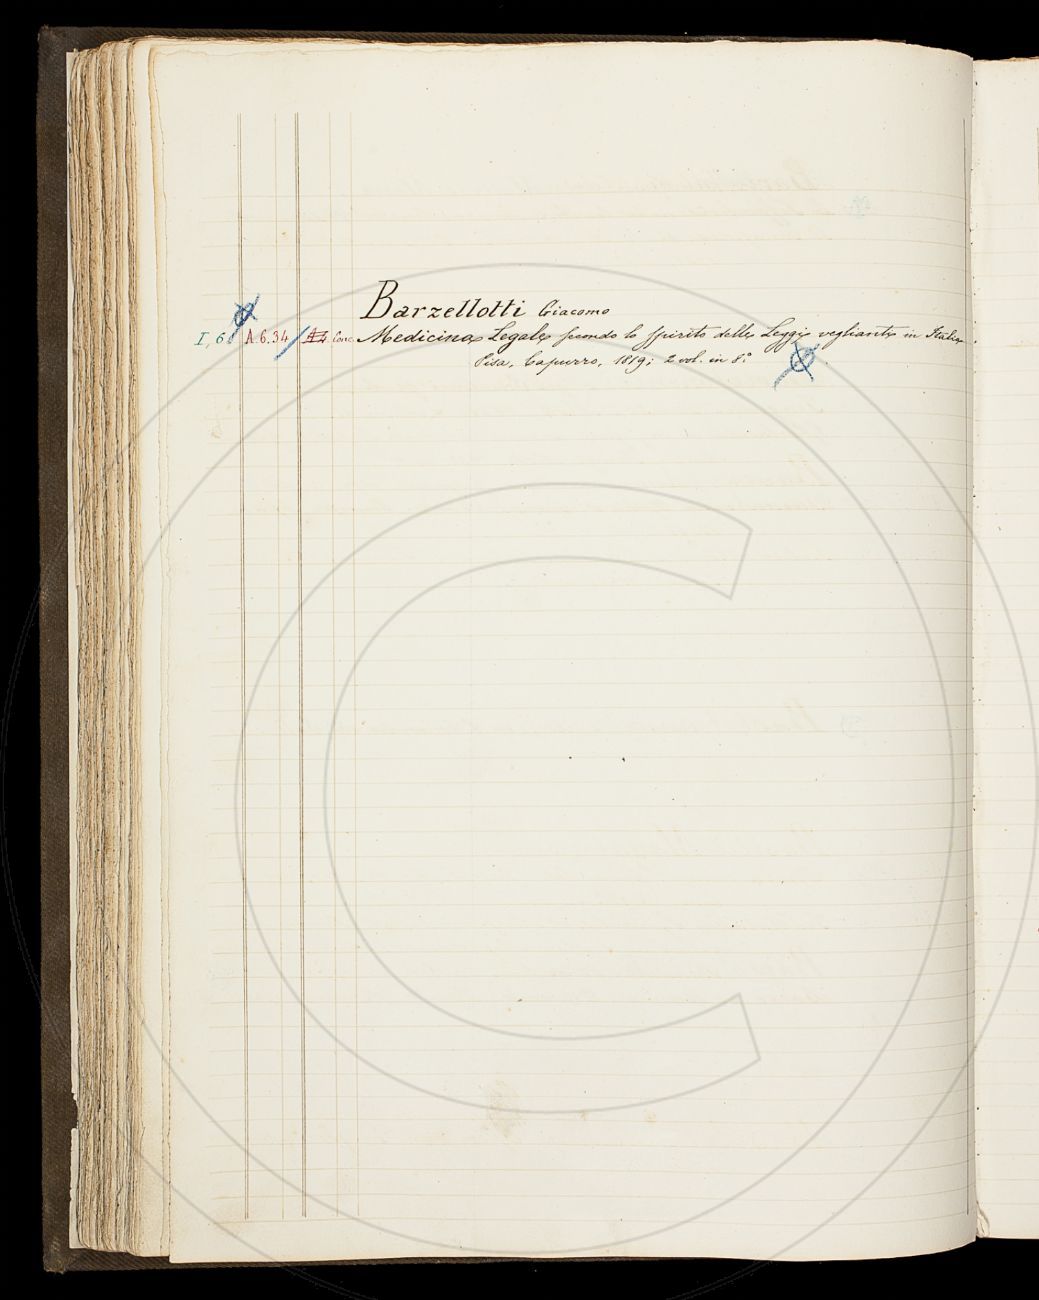 Barzellotti Giacomo
I, 6 A.6.34 A4 Conc. Medicina Legale secondo lo spirito delle Leggi veglianti in Italia.
Pisa, Capurro, 1819; 2 vol. in 8.°